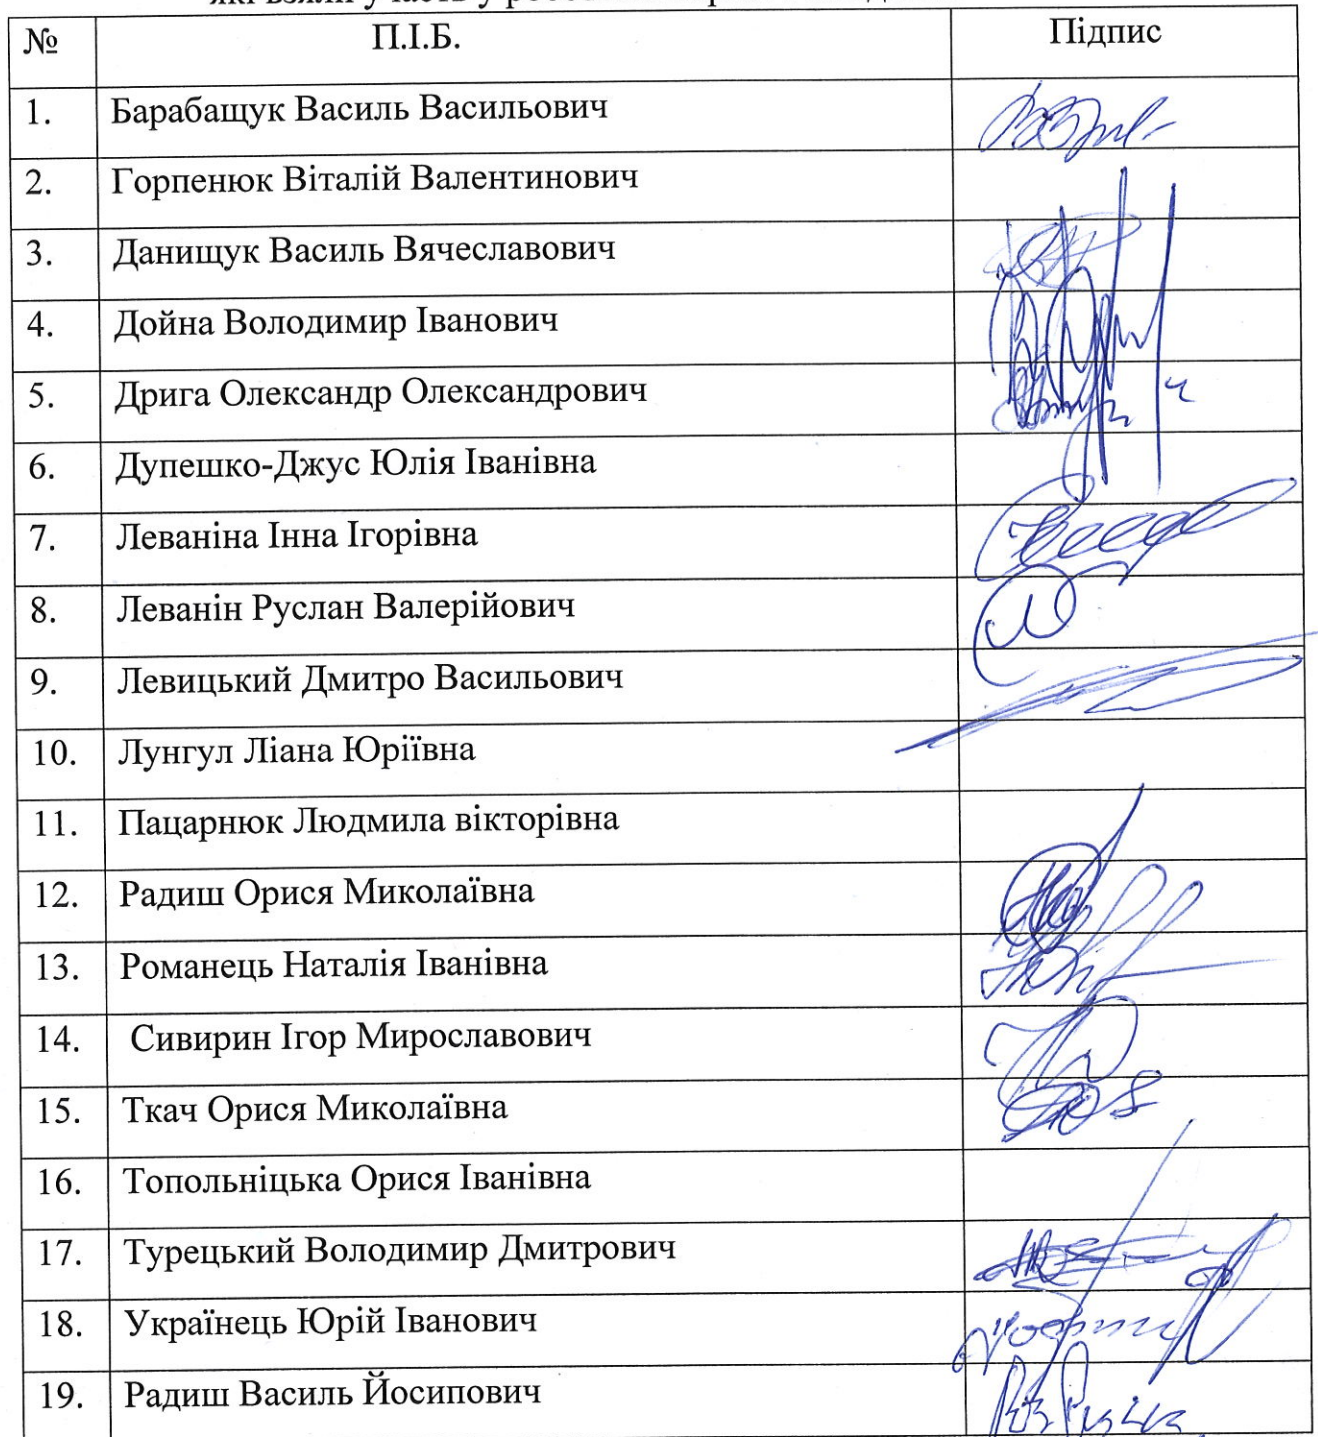 які взяли участь у
№ П.І.Б. Підпис
1. Барабащук Василь Васильович
2. Горпенюк Віталій Валентинович
3. Данищук Василь Вячеславович
4. Дойна Володимир Іванович
5. Дрига Олександр Олександрович
6. Дупешко-Джус Юлія Іванівна
7. Леваніна Інна Ігорівна
8. Леванін Руслан Валерійович
9. Левицький Дмитро Васильович
10. Лунгул Ліана Юріївна
11. Пацарнюк Людмила вікторівна
12. Радиш Орися Миколаївна
13. Романець Наталія Іванівна
14. Сивирин Ігор Мирославович
15. Ткач Орися Миколаївна
16. Топольніцька Орися Іванівна
17. Турецький Володимир Дмитрович
18. Українець Юрій Іванович
19. Радиш Василь Йосипович